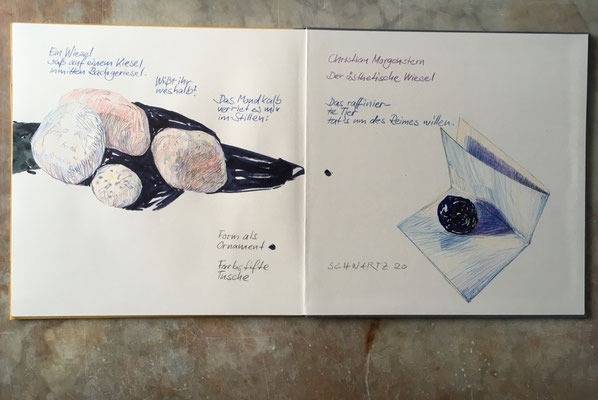 Ein Wiesel
saß auf einem Kiesel
inmitten Bachgeriesel.
Wißt ihr
weshalb?
Das Mondkalb
verriet es mir
im Stillen:
Form als
Ornament
Farbstifte
Tusche
Christian Morgenstern
Der ästhetische Wiesel
Das raffinier-
te Tier
tat's um des Reimes willen.
SCHWARTZ 20